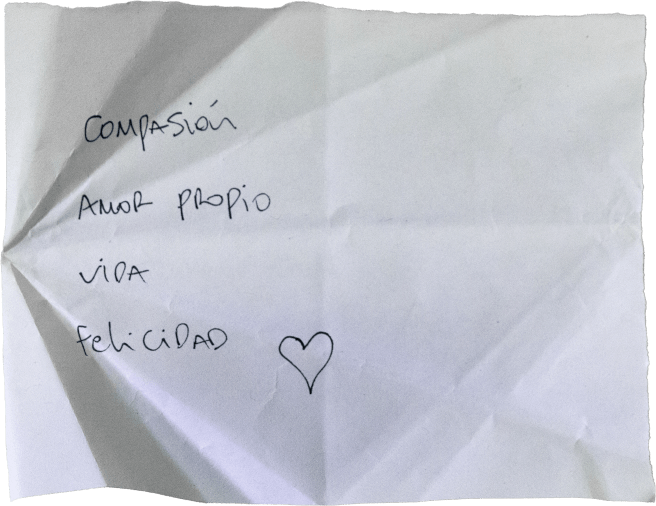 COMPASIÓN
AMOR PROPIO
VIDA
FELICIDAD